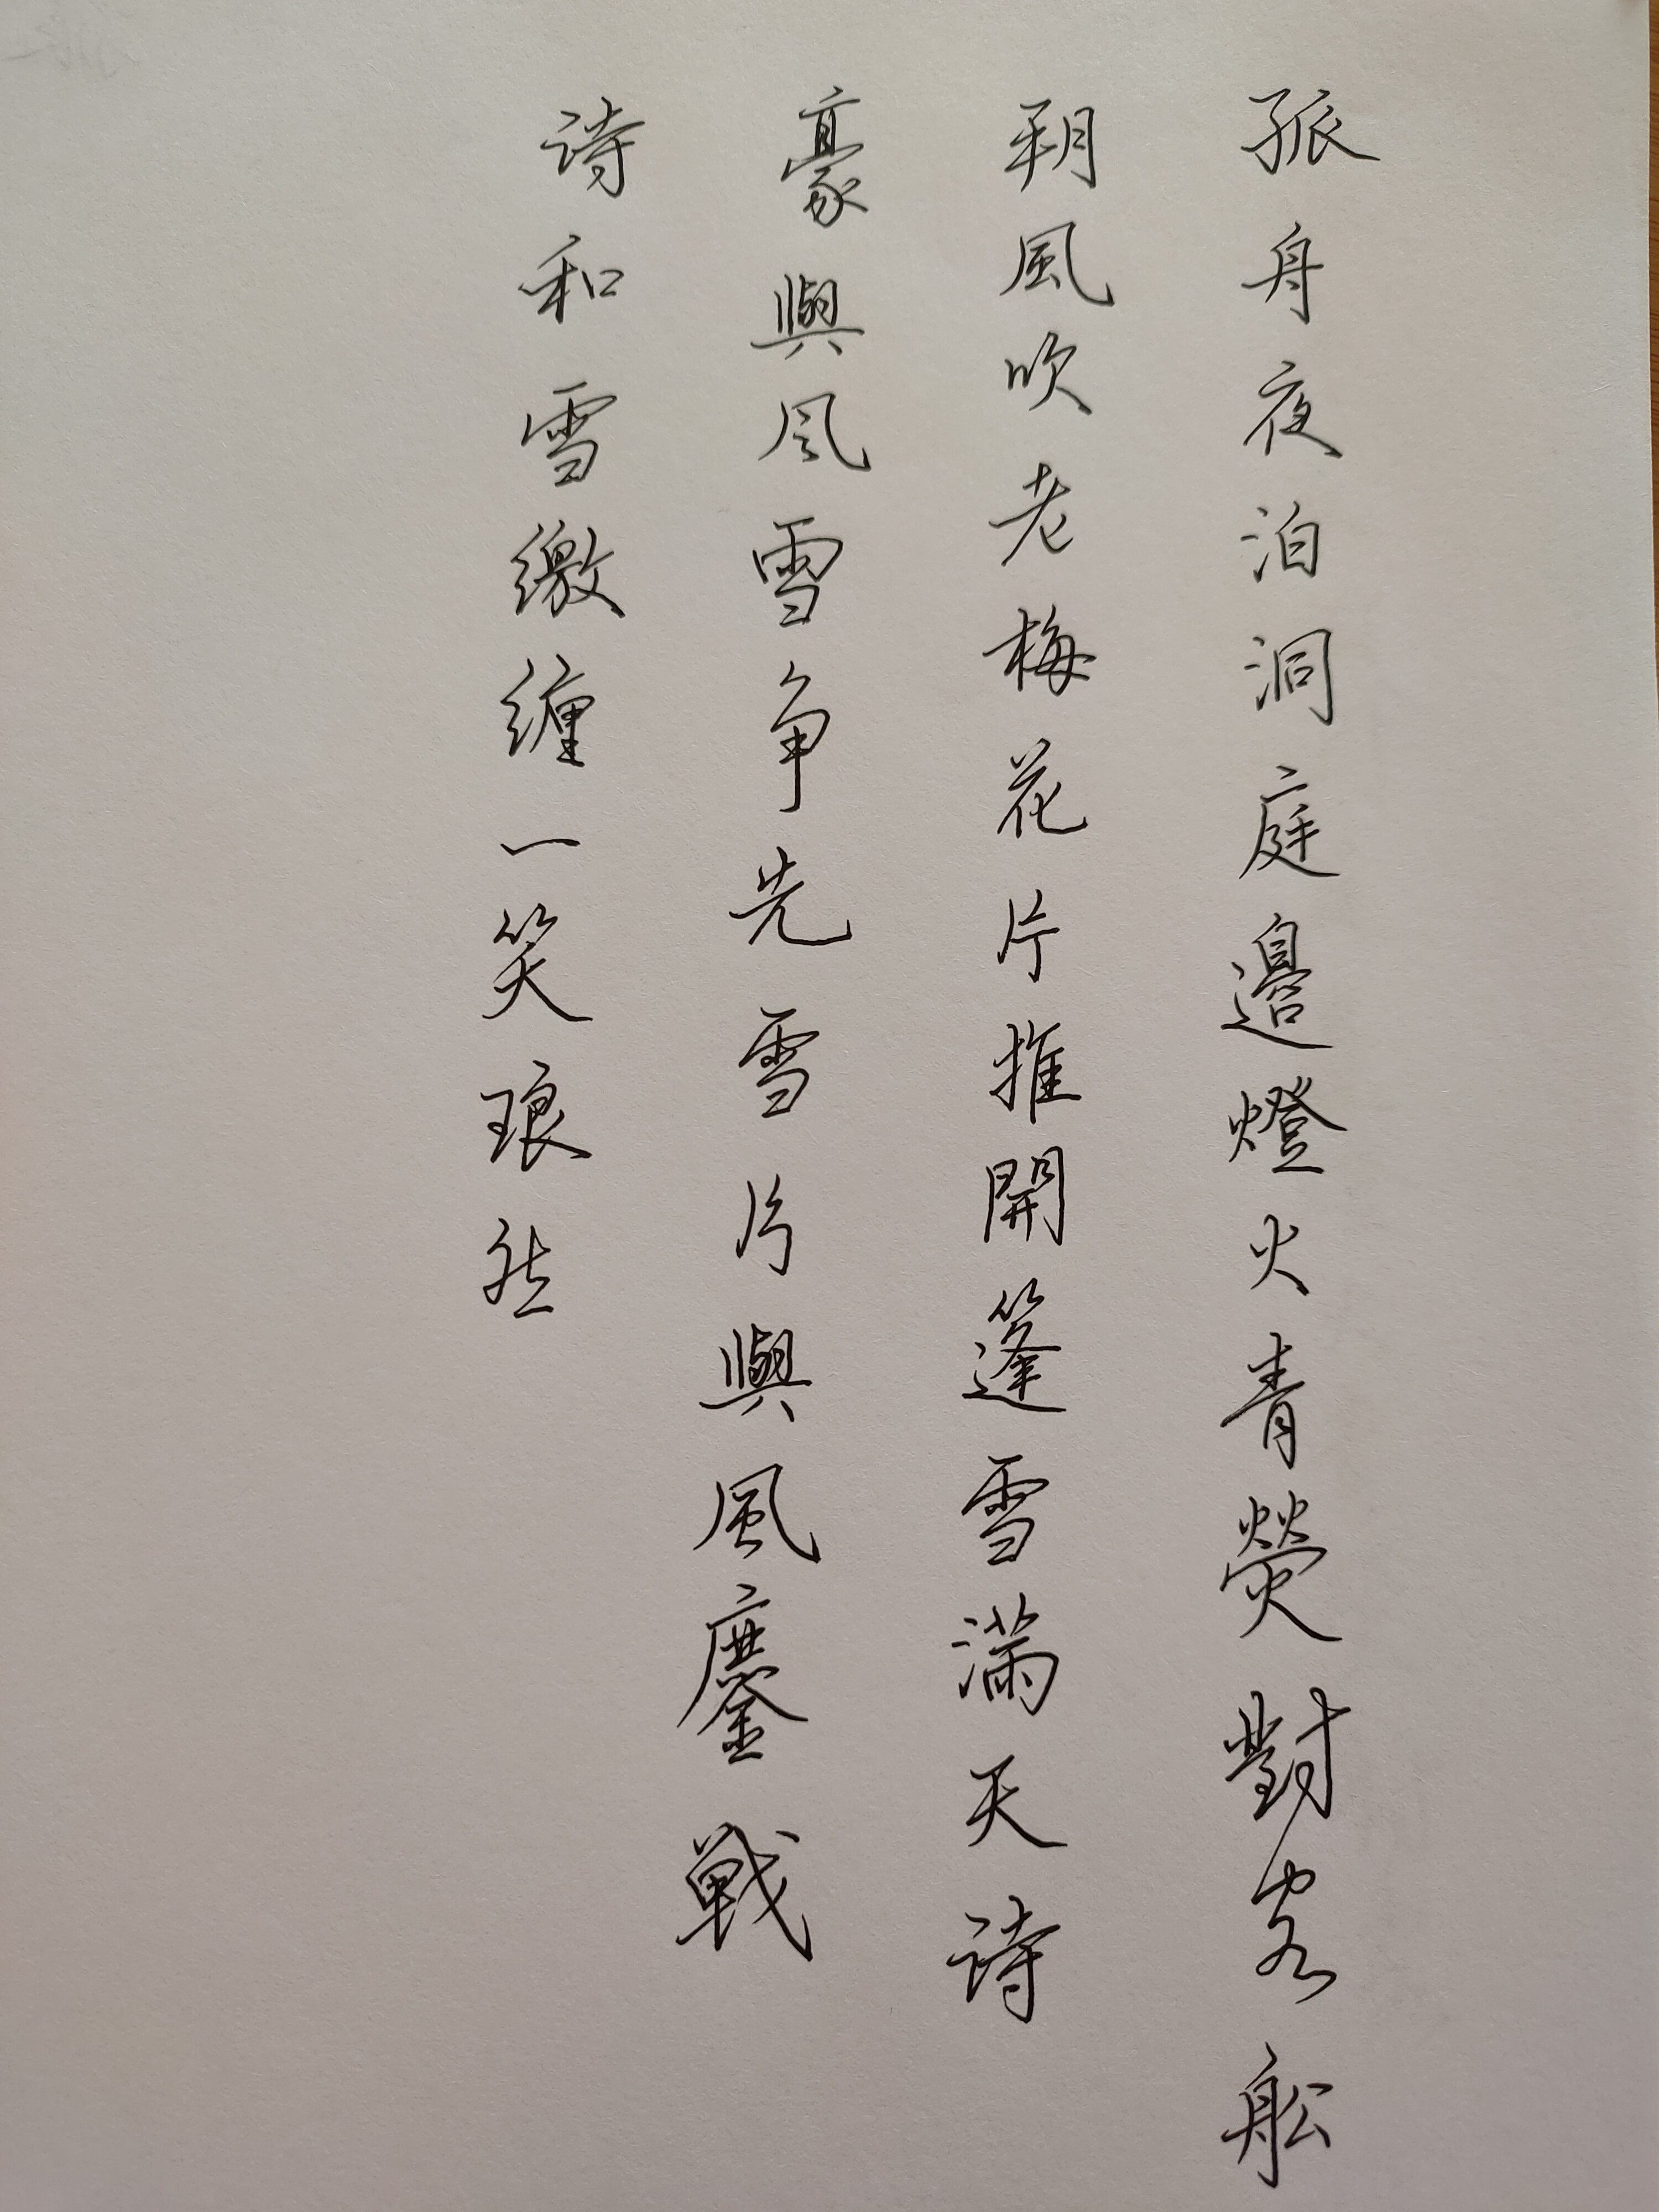 孤舟夜泊洞庭邊燈火青熒對客船
朔風吹老梅花片推開篷雪滿天詩
豪與风雪争先雪片與風鏖戦
詩和雪缴缠一笑琅然